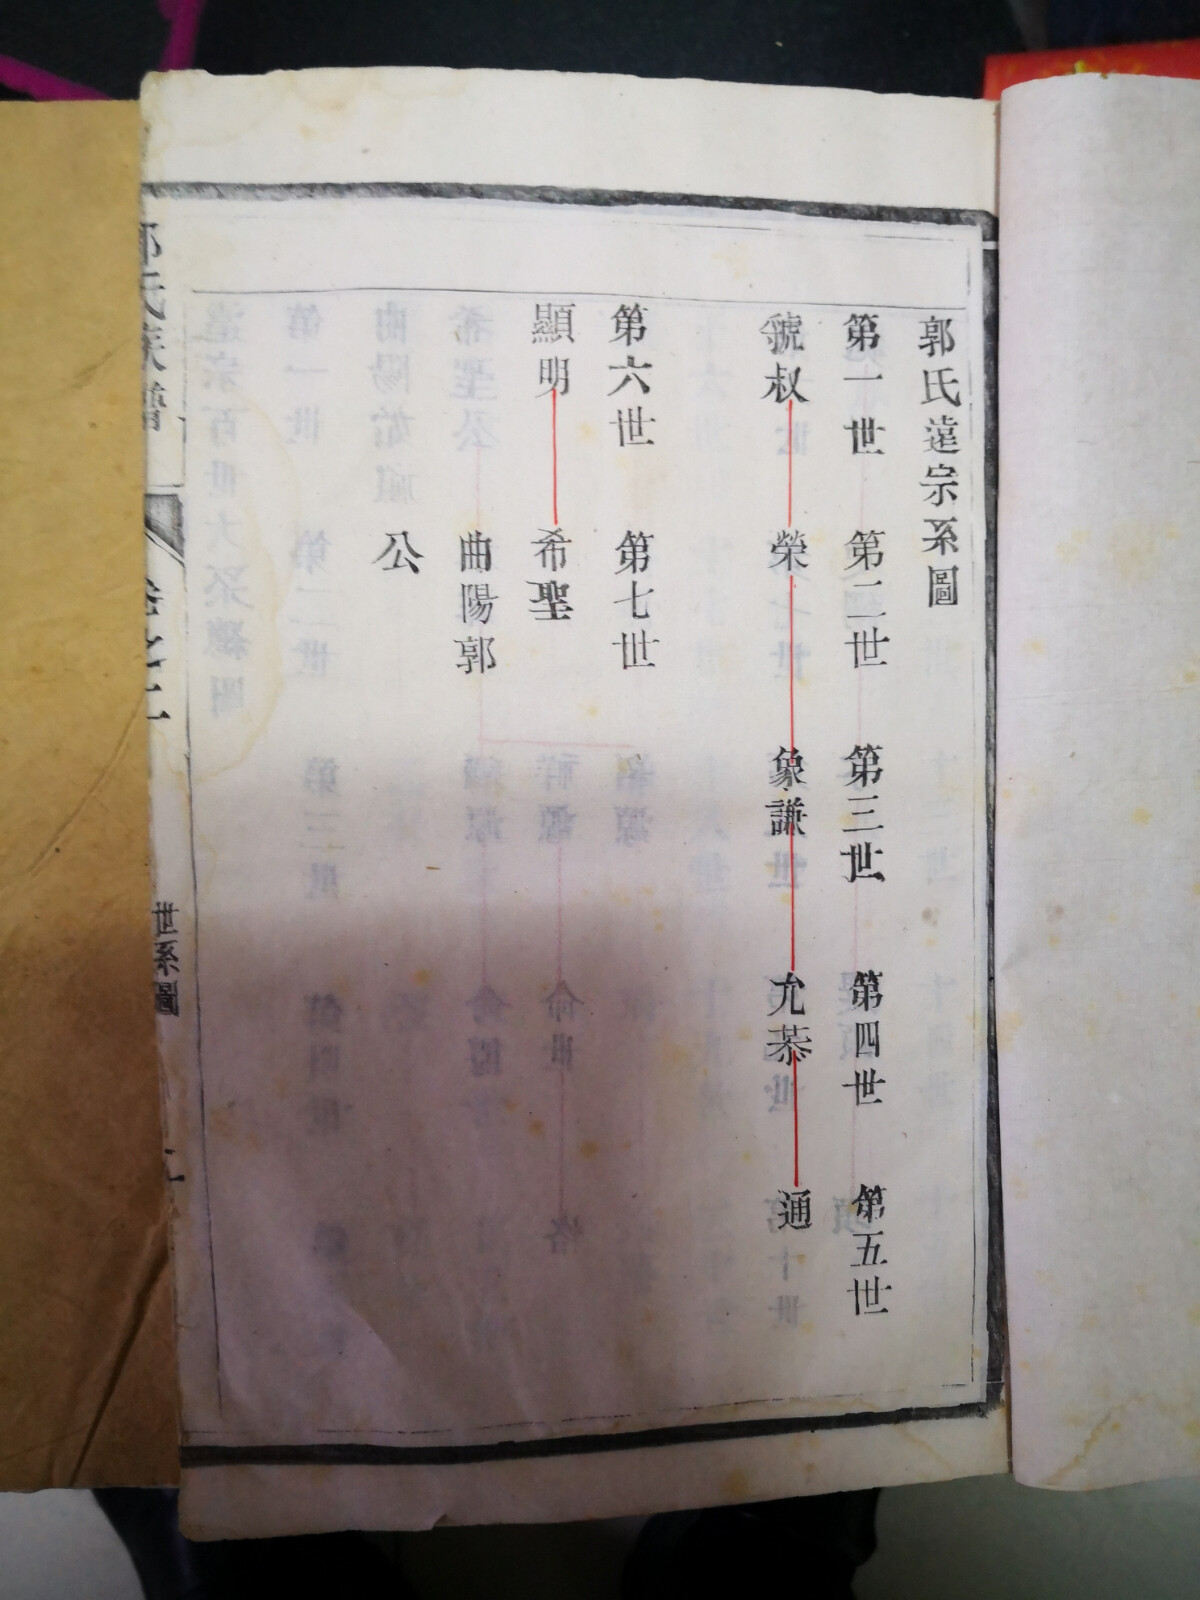 郭氏遠宗系圖
第一世 第二世 第三世 第四世 第五世
虢叔 榮 象謙 允恭 通
第六世 第七世
顯明 希聖
曲陽郭
公
郭氏族譜 卷之二 世系圖